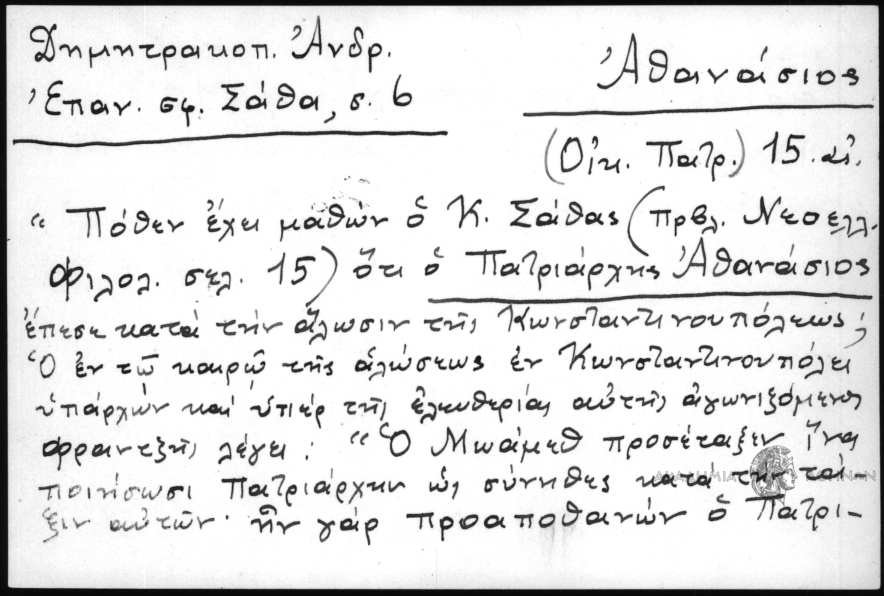 Δημητρακοπ. Ἀνδρ.
Ἐπαν. σφ. Σάθα, σ. 6
Ἀθανάσιος
(Οἰκ. Πατρ.) 15. αἰ.
“ Πόθεν ἔχει μαθὼν ὁ Κ. Σάθας (πρβλ. Νεοελλ.
Φιλολ. σελ. 15) ὅτι ὁ Πατριάρχης Ἀθανάσιος
ἔπεσε κατὰ τὴν ἅλωσιν τῆς Κωνσταντινουπόλεως;
Ὁ ἐν τῷ καιρῷ τῆς ἁλώσεως ἐν Κωνσταντινουπόλει
ὑπάρχων καὶ ὑπὲρ τῆς ἐλευθερίας αὐτῆς ἀγωνιζόμενος
Φραντζῆς λέγει: “Ὁ Μωάμεθ προσέταξεν ἵνα
ποιήσωσι Πατριάρχην ὡς σύνηθες κατὰ τὴν τά-
ξιν αὐτῶν· ἦν γὰρ προαποθανὼν ὁ Πατρι-